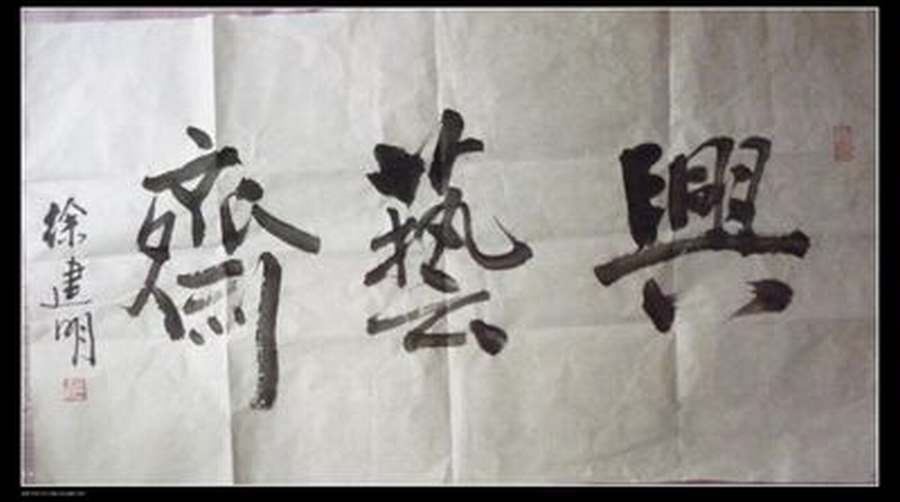 興藝齋
徐建明